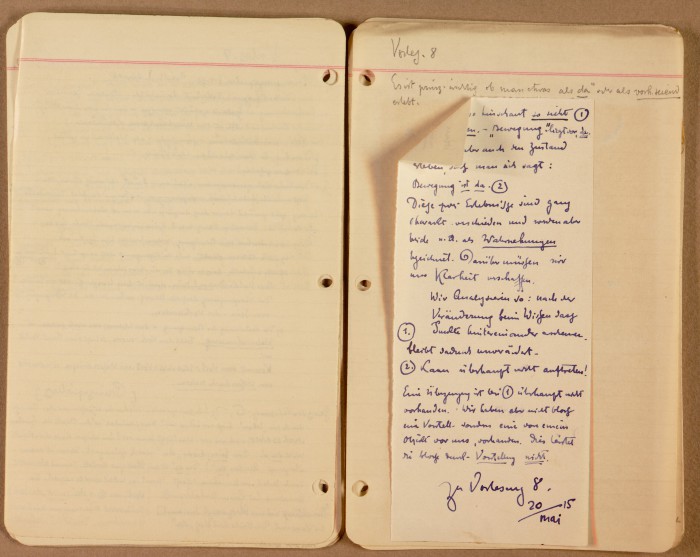 Vorles. 8
Es ist prinz. wichtig ob man etwas als "da" oder als vorh. seiend
erlebt.
hinschaut so nicht ①
"Bewegung" liegt vor, da.
aber auch den Zustand
erleben, daß man sich sagt:
Bewegung ist da. ②
Diese zwei Erlebnisse sind ganz
charakt. verschieden und werden aber
beide als Wahrnehmungen
bezeichnet. Darüber müssen wir
uns Klarheit verschaffen.
Wir Analysieren so: nach der
Veränderung beim Wissen daß
①. hintereinander
bleibt dadurch unverändert.
②. Kann überhaupt nicht auftreten!
Eine Überzeugung ist bei ① überhaupt nicht
vorhanden. Wir haben aber nicht bloß
eine Vorstell. sondern eine von einem
Objekt vor uns, vorhanden. Dies leistet
die bloße Vorstellung nicht.
Zu Vorlesung 8.
20 15
Mai